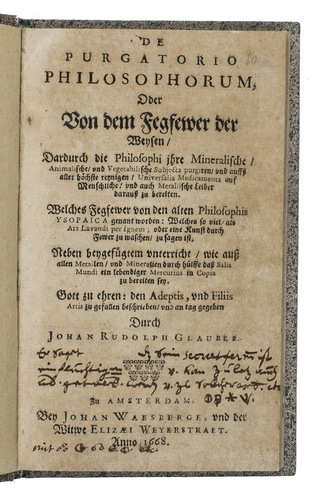 DE
PURGATORIO
PHILOSOPHORUM,
Oder
Von dem Fegfewer der
Weysen/
Dardurch die Philosophi jhre Mineralische/
Animalische/ und Vegetabilische Subjecta purgiren/ und auffs
aller höchste reynigen/ Universalia Medicamenta auf
Menschliche/ und auch Metallische Leiber
darauß zu bereiten.
Welches Fegfewer von den alten Philosophis
YSOPAICA genant worden: Welches so viel/ als
Ars Lavandi per ignem, oder eine Kunst durch
Fewer zu waschen/ zu sagen ist,
Neben beygefügtem unterricht/ wie auß
allen Metallen/ und Mineralien durch hülffe deß Salis
Mundi ein lebendiger Mercurius in Copia
zu bereiten sey.
Gott zu ehren: den Adeptis, vnd Filiis
Artis zu gefallen beschrieben/ und an tag gegeben
Durch
JOHAN RUDOLPH GLAUBER.
Zu AMSTERDAM.
Bey JOHAN WAESBERGE, vnd der
Witwe ELIZÆI WEYERSTRAET.
Anno 1668.